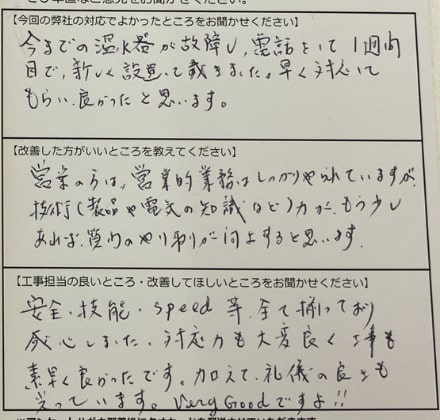 【今回の弊社の対応でよかったところをお聞かせください】
今までの温水器が故障し、電話をして1週間
目で、新しく設置して戴きました。早く対応して
もらい、良かったと思います。
【改善した方がいいところを教えてください】
営業の方は、営業的業務はしっかりやられていますが、
技術（製品や電気の知識など）力が、もう少し
あれば、質内のやり取りが向上すると思います。
【工事担当の良いところ・改善してほしいところをお聞かせください】
安全・技能・speed 等、全て揃っており
感心しました。対応力も大変良く工事も
素早く良かったです。加えて、礼儀の良さも
Very Goodですよ!!